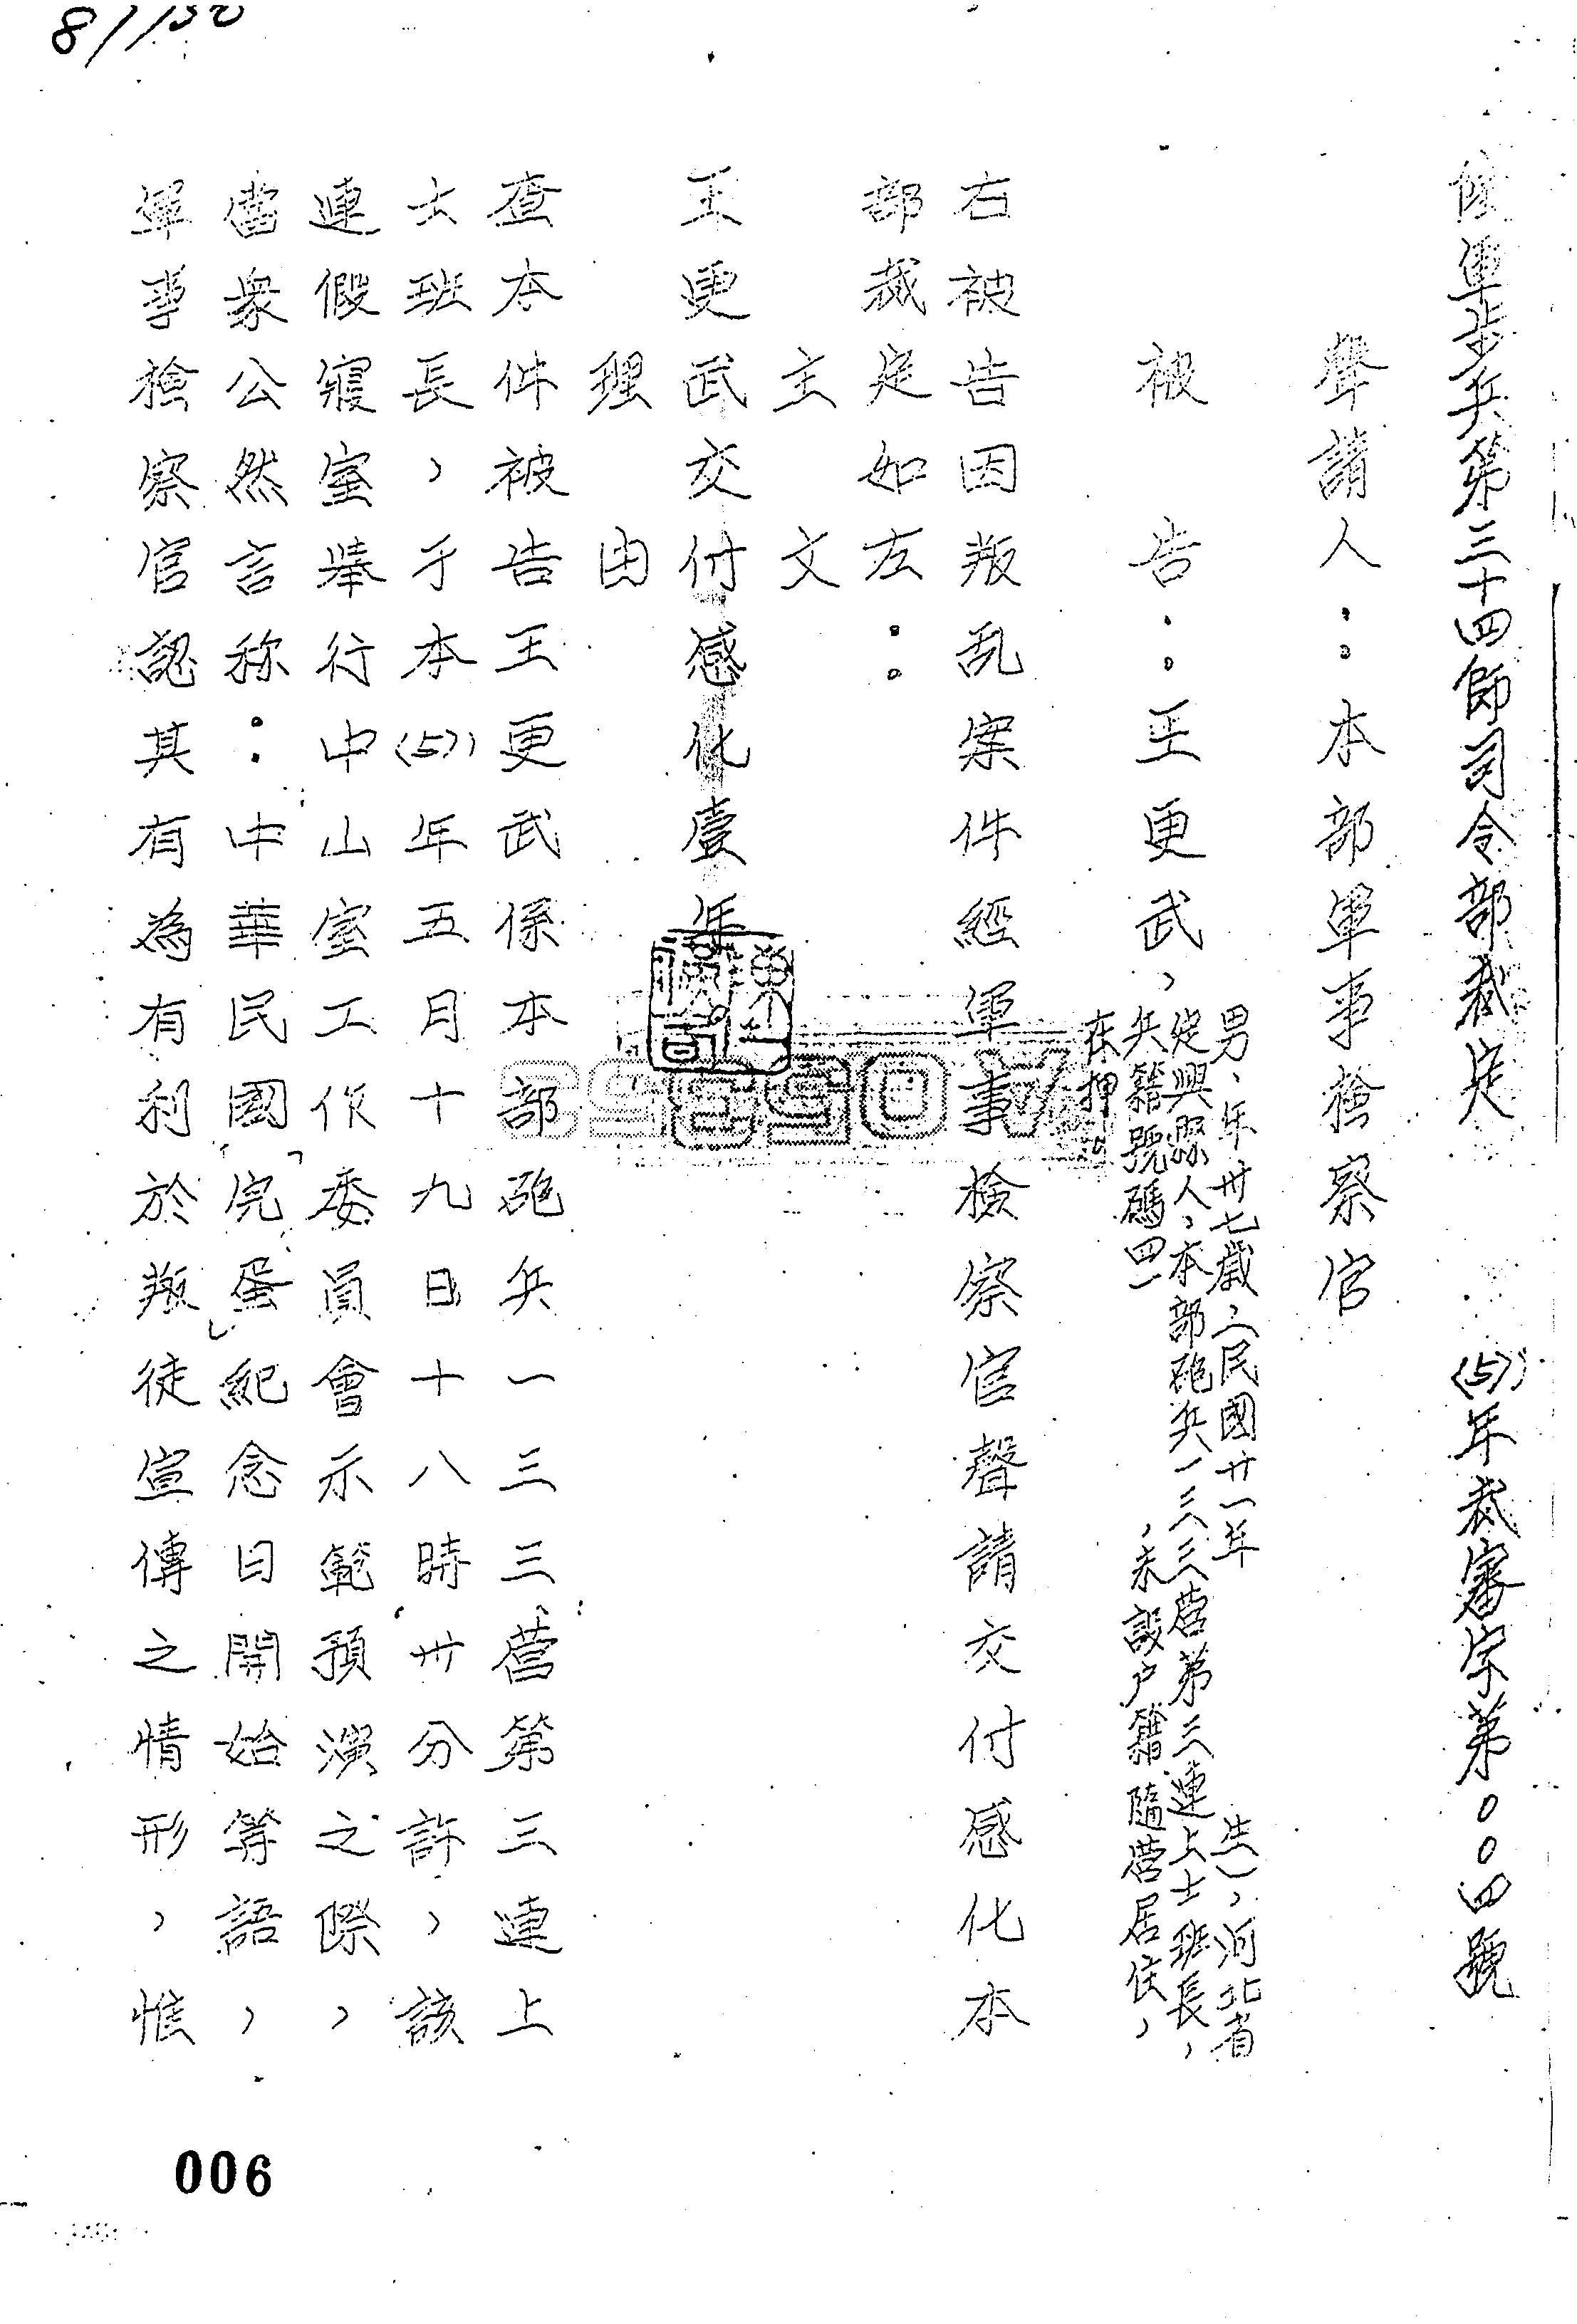 陸軍步兵第三十四師司令部裁定 (57)年裁審字第〇〇四號
聲請人：本部軍事檢察官
被告：王更武，
男、年卅七歲，(民國廿一年生)，河北省
定興縣人，本部砲兵一三三營第三連上士班長，
兵籍號碼四一，未設戶籍隨營居住，
在押
右被告因叛乱案件經軍事檢察官聲請交付感化本
部裁定如左：
主文
王更武交付感化壹年
理由
查本件被告王更武係本部砲兵一三三營第三連上
士班長，于本(57)年五月十九日十八時卅分許，該
連假寢室舉行中山室工作委員會示範預演之際，
當衆公然言称：中華民國「完蛋」紀念日開始等語，
軍事檢察官認其有為有利於叛徒宣傳之情形，惟
006